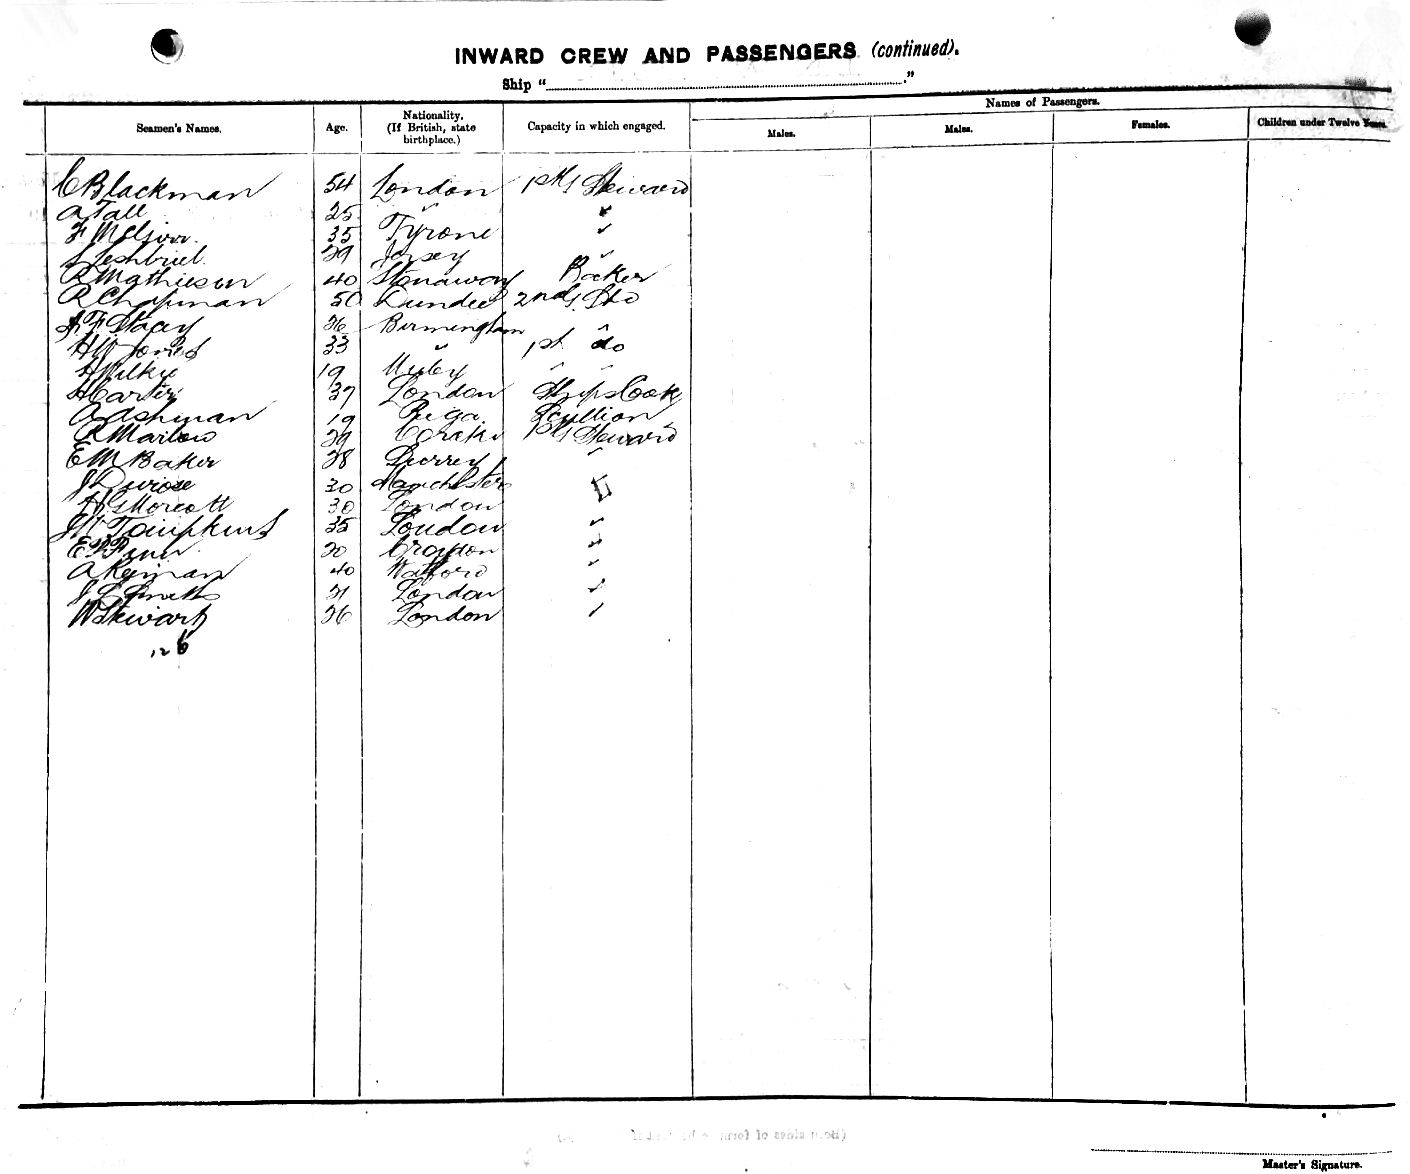 INWARD CREW AND PASSENGERS (continued).
Ship " "
Names of Passengers.
Seamen's Names. Age. Nationality. (If British, state birthplace.) Capacity in which engaged. Males. Males. Females. Children under Twelve Years.
C Blackman 54 London 1st Steward
A Tall 25 " "
F 35 Tyrone "
29 Jersey "
R Mathieson 40 Baker
R Chapman 50 Dundee 2nd
F Stacy 26 Birmingham "
H W Jones 33 " 1st do
H Wilkie 19 " "
H Carter 37 London Ships Cook
A Ashman 19 Riga Scullion
R Marlow 29 Steward
E M Baker 28 Surrey "
J Durose 30 Manchester "
H G Morcott 30 London
J W Tompkins 35 London "
E F Finn 20 Croydon "
A 40 Watford "
J S Smith 21 London "
W Stewart 26 London "
126
Master's Signature.